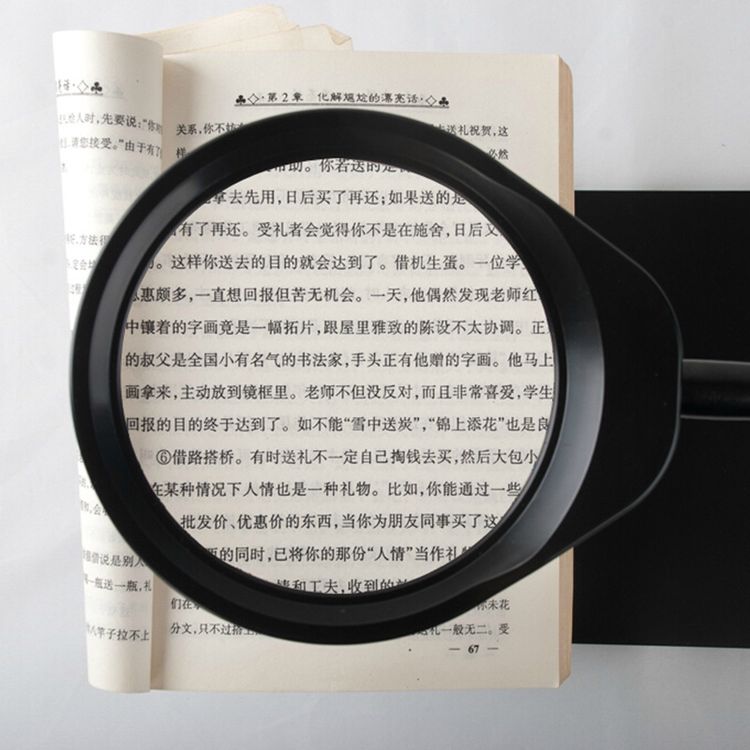 给人时，先要说：“你
请您接受。”由于有了
方法很
第2章 化解尴尬的漂亮话
关系，你不妨
去送礼祝贺，这
样
必然
帮助。你若送的是
拿去先用，日后买了再还；如果送的是
有了再还。受礼者会觉得你不是在施舍，日后又
。这样你送去的目的就会达到了。借机生蛋。一位学
惠颇多，一直想回报但苦无机会。一天，他偶然发现老师红
中镶着的字画竟是一幅拓片，跟屋里雅致的陈设不太协调。正
的叔父是全国小有名气的书法家，手头正有他赠的字画。他马上
画拿来，主动放到镜框里。老师不但没反对，而且非常喜爱，学生
回报的目的终于达到了。如不能“雪中送炭”，“锦上添花”也是良
⑥借路搭桥。有时送礼不一定自己掏钱去买，然后大包小
在某种情况下人情也是一种礼物。比如，你能通过一些
批发价、优惠价的东西，当你为朋友同事买了这
的同时，已将你的那份“人情”当作礼物
情和工夫，收到的
借说是别人
一瓶送一瓶，礼
八竿子拉不上
们在拿
你未花
分文，只不过搭上
送礼一般无二。受
— 67 —